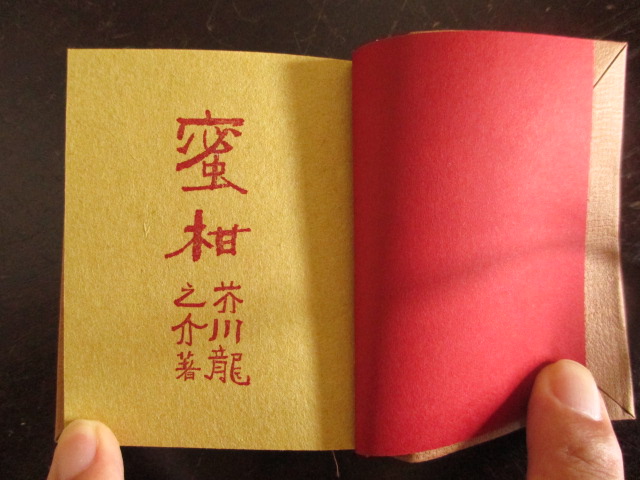 蜜柑
芥川龍
之介著